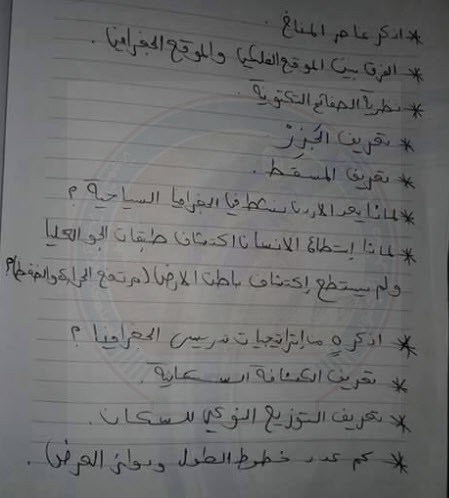 * اذكر عناصر المناخ.
* الفرق بين الموقع الفلكي والموقع الجغرافيا.
* نظرية الصفائح التكتونية.
* تعريف الجَزرْ
* تعريف المسقط.
* لماذا يعد الاردن في الجغرافيا السياحية ؟
* لماذا إستطاع الانسان اكتشاف طبقات الجو العليا
ولم يستطع إكتشاف باطن الارض (مرتفع الحرارة والضغط)؟
* اذكر ٥ من إستراتيجيات تدريس الجغرافيا ؟
* تعريف الكثافة السكانية.
* تعريف التوزيع النوعي للسكان.
* كم عدد خطوط الطول ودوائر العرض.